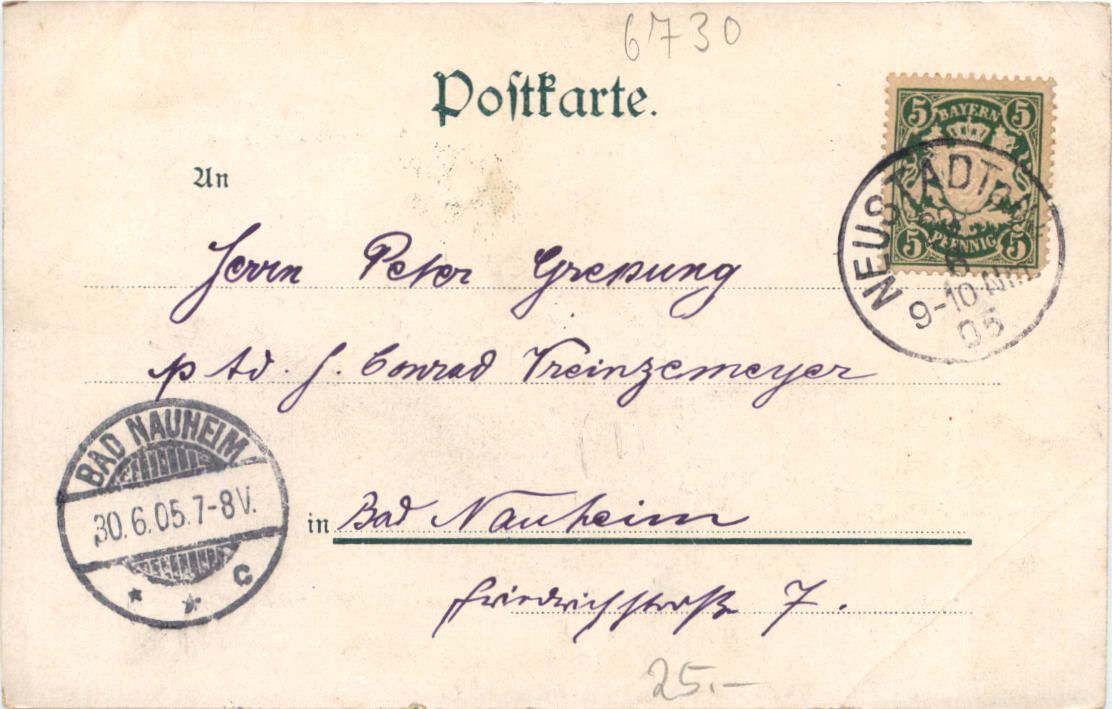 6730
Postkarte.
5 BAYERN 5
5 PFENNIG 5
NEUSTADT
9-10 Nm.
05
An
Herrn Peter
p Ad. H. Conrad Kreinzemeyer
BAD NAUHEIM
30.6.05.7-8V.
* * C
in Bad Nauheim
Friedrichstraße 7.
25.-